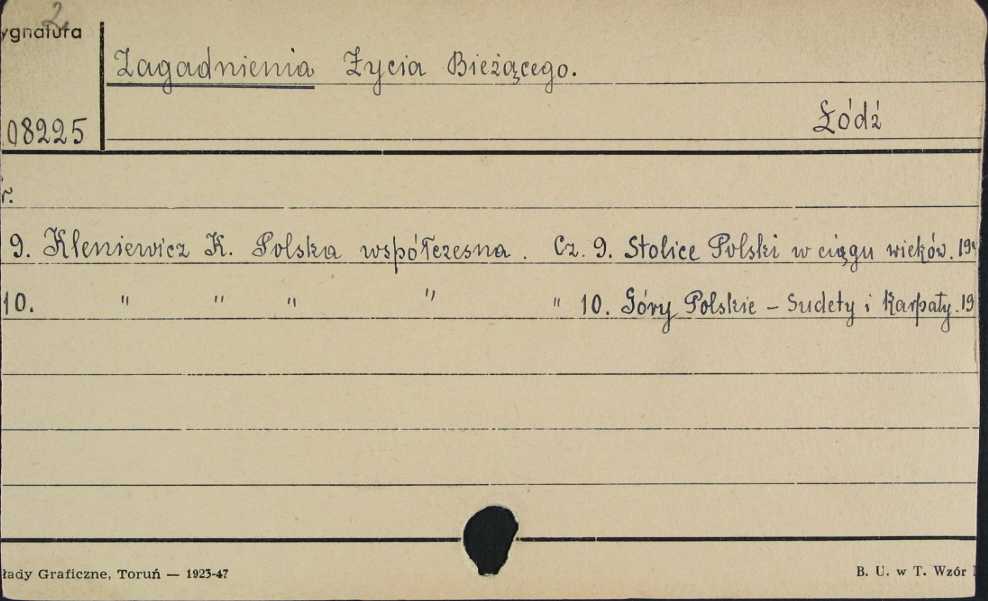 2
ygnatura
Zagadnienia Życia Bieżącego.
08225
Łódź
r.
9. Kleniewicz K. Polska współczesna. Cz. 9. Stolice Polski w ciągu wieków. 19
10. " " " " " 10. Góry Polskie - Sudety i Karpaty. 19
łady Graficzne, Toruń — 1923-47
B. U. w T. Wzór